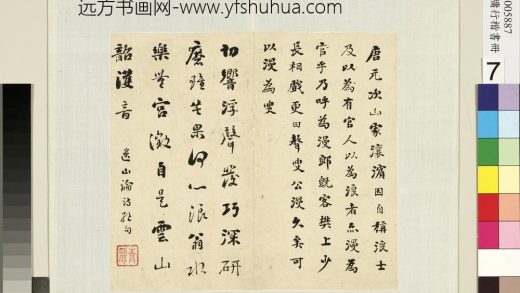 远方书画网-www.yfshuhua.com
唐元次山家瀼濱因自稱浪士
及以為有官人以為浪者亦漫為
官乎乃呼為漫郎既客樊上少
長相戲更曰聱叟公漫久矣可
以漫為叟
切響浮聲發巧深研
磨雖苦果何心浪翁水
樂無宮徵自是雲山
韶濩音
遺山論詩絕句
005887
墉行楷書冊
7